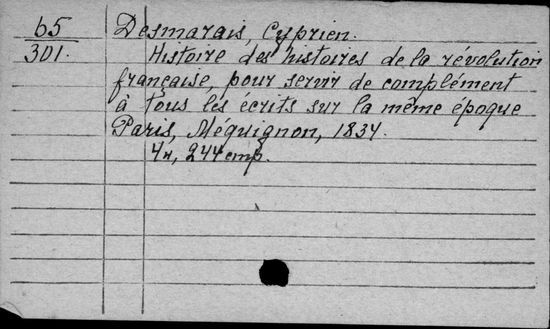 65
301.
Desmarais, Cyprien.
Histoire des histoires de la révolution
française, pour servir de complément
à tous les écrits sur la même époque
Paris, Méquignon, 1834.
4н, 244 стр.